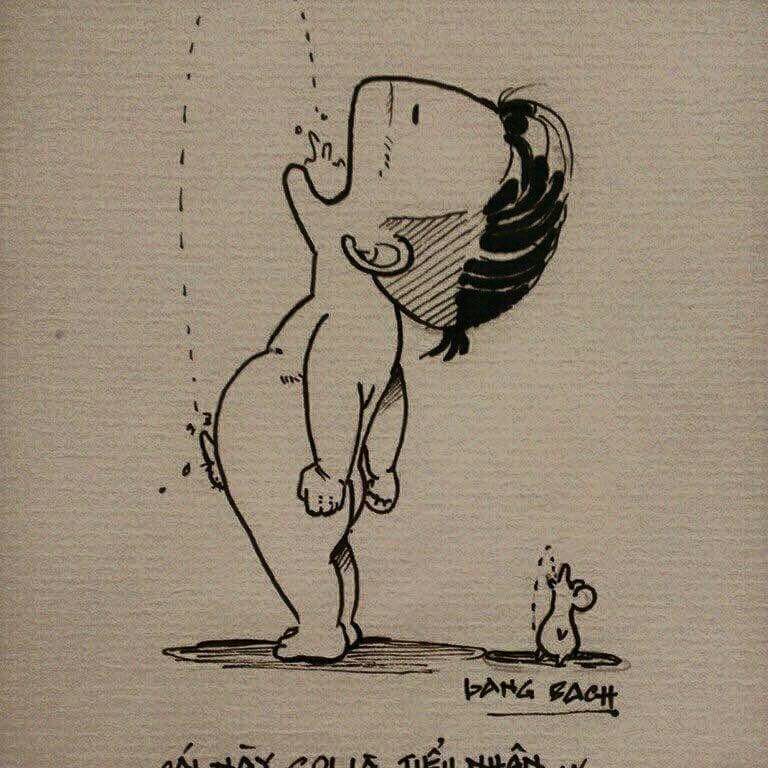 ĐANG BACH
CÁI NÀY GỌI LÀ TIỂU NHÂN...